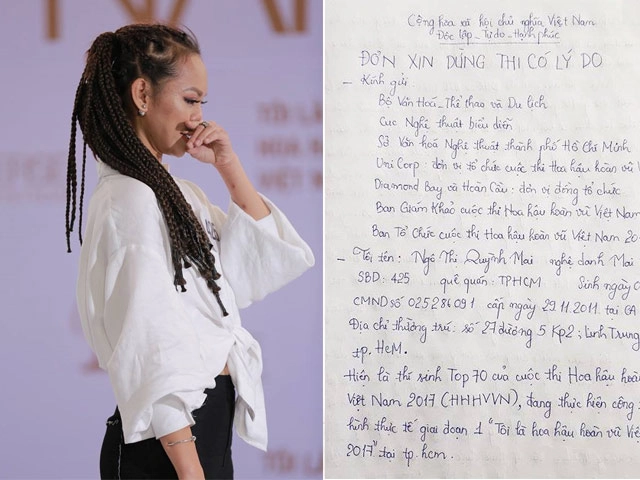 TÔI LÀ
HOA H
VIỆT N
Cộng hòa xã hội chủ nghĩa Việt Nam
Độc lập _ Tự do _ Hạnh phúc
ĐƠN XIN DỪNG THI CÓ LÝ DO
_ Kính gửi
Bộ Văn Hoá _ Thể thao và Du lịch
Cục Nghệ thuật biểu diễn
Sở Văn hoá Nghệ thuật thành phố Hồ Chí Minh
Uni Corp : đơn vị tổ chức cuộc thi Hoa hậu hoàn vũ V
Diamond Bay và Hoàn Cầu : đơn vị đồng tổ chức
Ban Giám Khảo cuộc thi Hoa hậu hoàn vũ Việt Nam
Ban Tổ Chức cuộc thi Hoa hậu hoàn vũ Việt Nam 20
_ Tôi tên : Ngô Thị Quỳnh Mai nghệ danh Mai
SBD : 425 quê quán : TPHCM Sinh ngày
CMND số 025286091 cấp ngày 29.11.2011 tại CA
Địa chỉ thường trú : số 27 đường 5 Kp2 ; Linh Trung
tp. HCM.
Hiện là thí sinh Top 70 của cuộc thi Hoa hậu hoàn
Việt Nam 2017 (HHHVVN), đang thực hiện công
hình thực tế giai đoạn 1 "Tôi là hoa hậu hoàn vũ Việ
2017" tại tp. hcm.